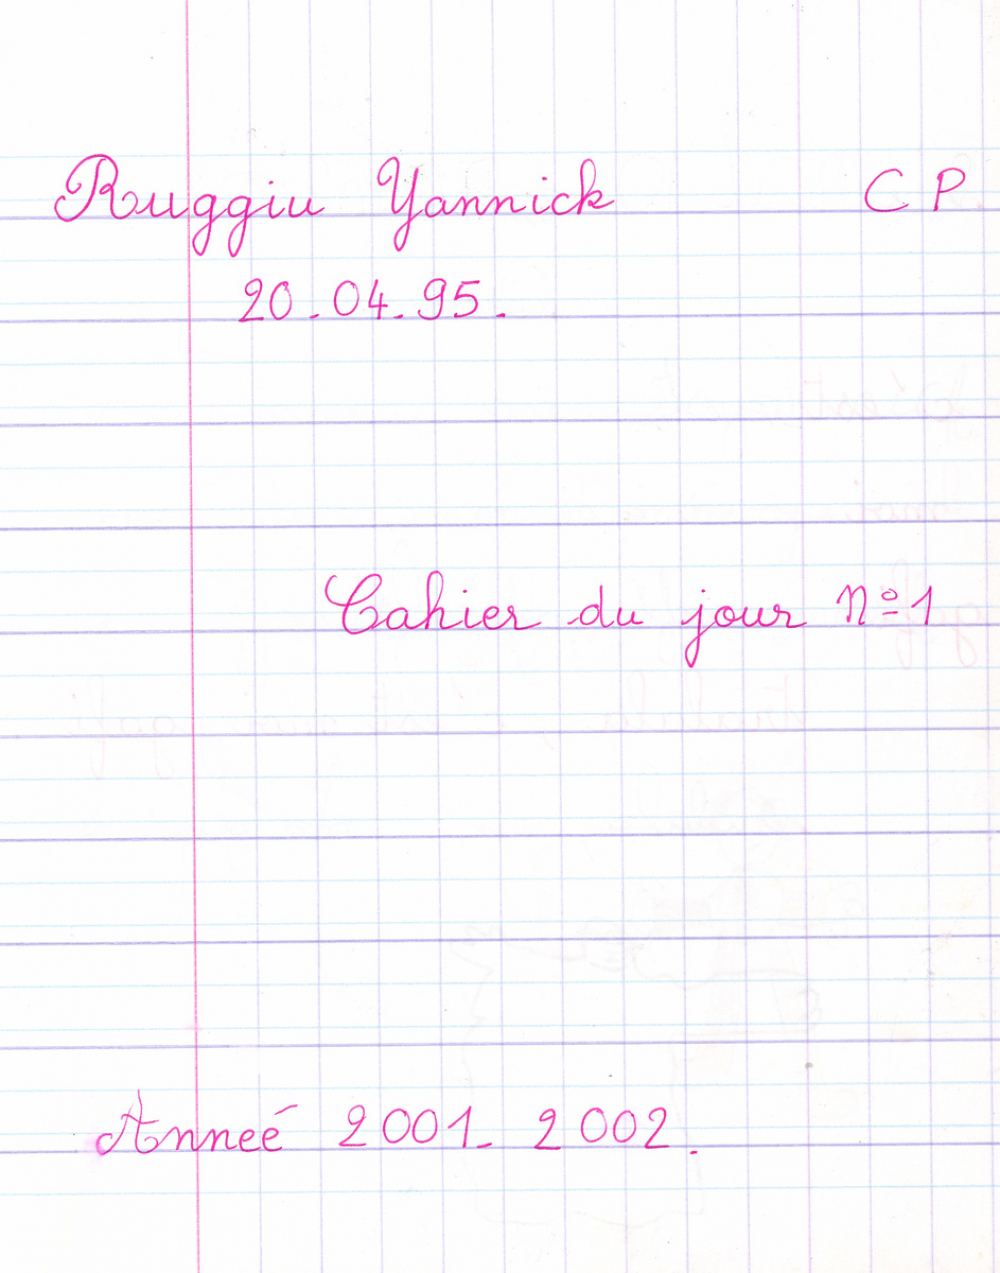 Ruggiu Yannick CP
20.04.95.
Cahier du jour n°1
Anneé 2001-2002.